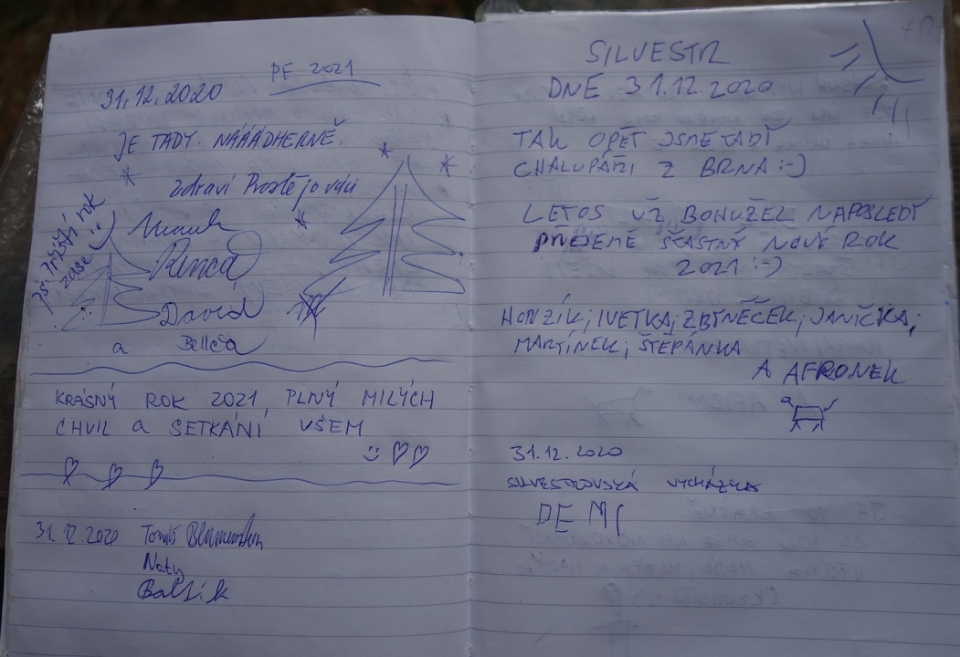 PF 2021
31.12.2020
JE TADY NÁÁÁDHERNĚ.
zdraví Prostějováci
Renča
David
a Bellča
Ps: Příští rok
zase :-)
KRÁSNÝ ROK 2021 PLNÝ MILÝCH
CHVIL a SETKÁNÍ VŠEM
31.12.2020 Tomáš
Naty
Baltík
SILVESTR
DNE 31.12.2020
TAK OPĚT JSME TADY
CHALUPÁŘI Z BRNA :-)
LETOS UŽ BOHUŽEL NAPOSLEDY
PŘEJEME ŠŤASTNÝ NOVÝ ROK
2021 :-)
HONZÍK; IVETKA; ZBYNĚČEK; JANIČKA;
MARTÍNEK; ŠTĚPÁNKA
A AFRONEK
31.12.2020
SILVESTROVSKÁ VYCHÁZKA